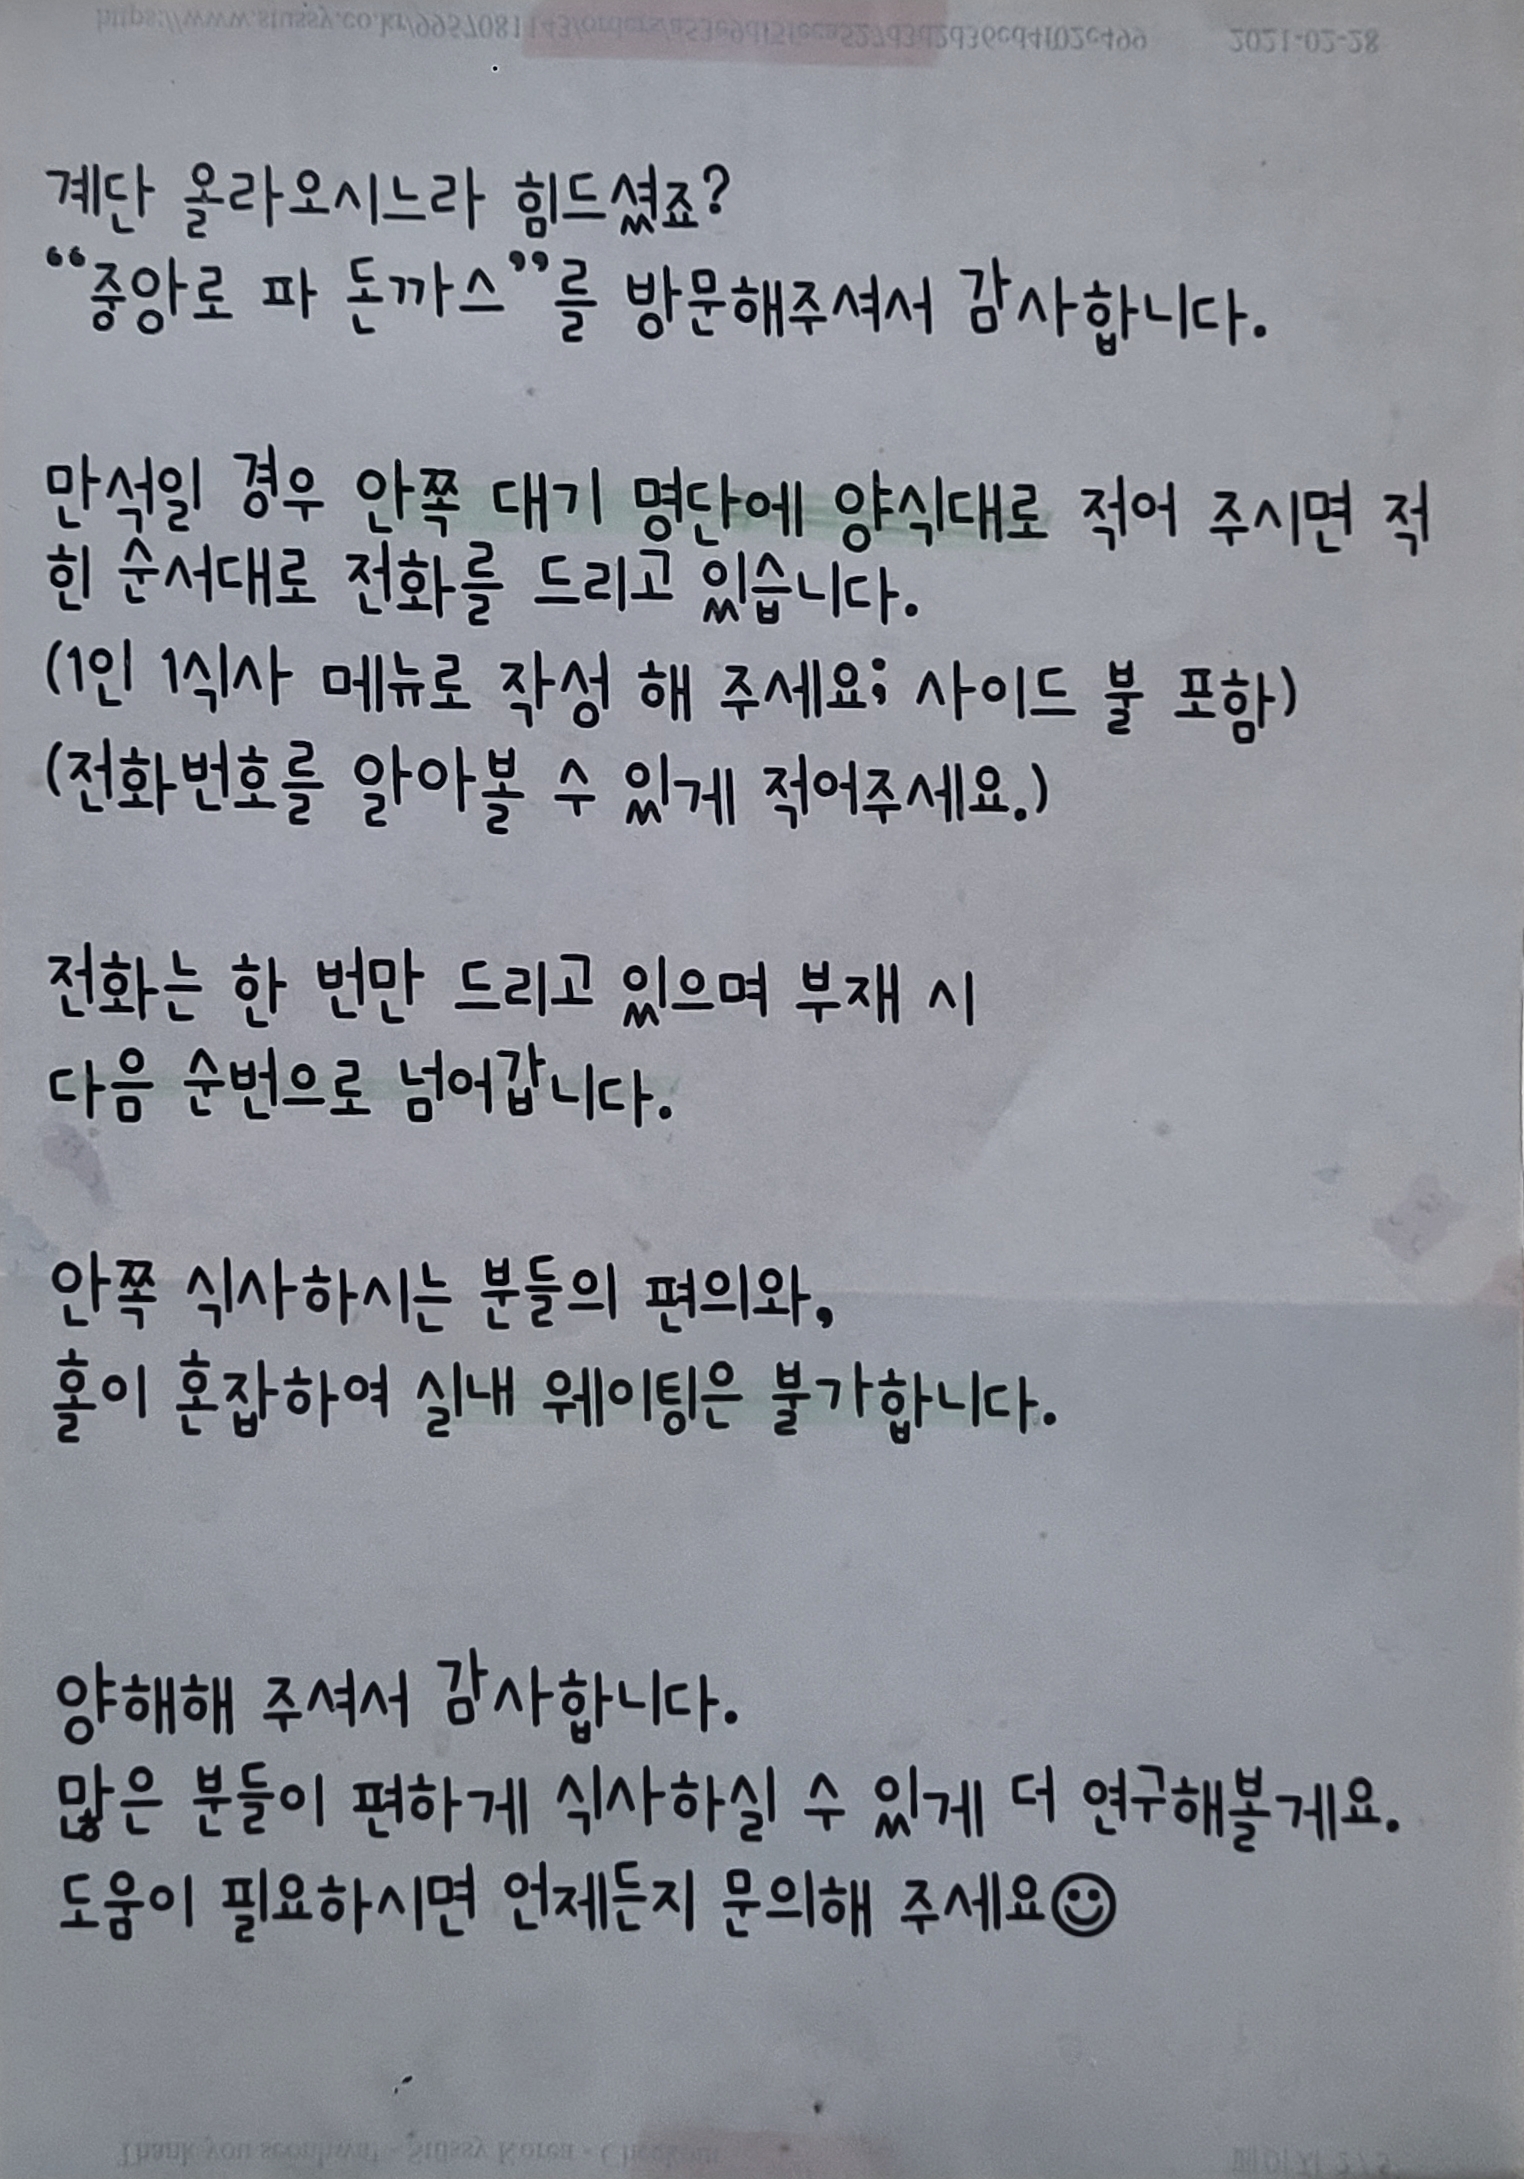 계단 올라오시느라 힘드셨죠?
“중앙로 파 돈까스”를 방문해주셔서 감사합니다.
만석일 경우 안쪽 대기 명단에 양식대로 적어 주시면 적
힌 순서대로 전화를 드리고 있습니다.
(1인 1식사 메뉴로 작성 해 주세요; 사이드 불 포함)
(전화번호를 알아볼 수 있게 적어주세요.)
전화는 한 번만 드리고 있으며 부재 시
다음 순번으로 넘어갑니다.
안쪽 식사하시는 분들의 편의와,
홀이 혼잡하여 실내 웨이팅은 불가합니다.
양해해 주셔서 감사합니다.
많은 분들이 편하게 식사하실 수 있게 더 연구해볼게요.
도움이 필요하시면 언제든지 문의해 주세요☺